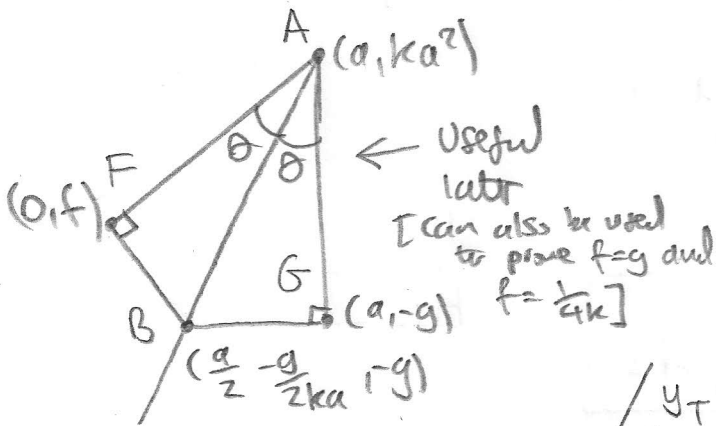 A
(a, ka²)
θ
θ
← Useful
later
[can also be used
to prove f=g and
f = 1/4k]
F
(0, f)
G
(a, -g)
B
(a/2 - g/2ka, -g)
y_T